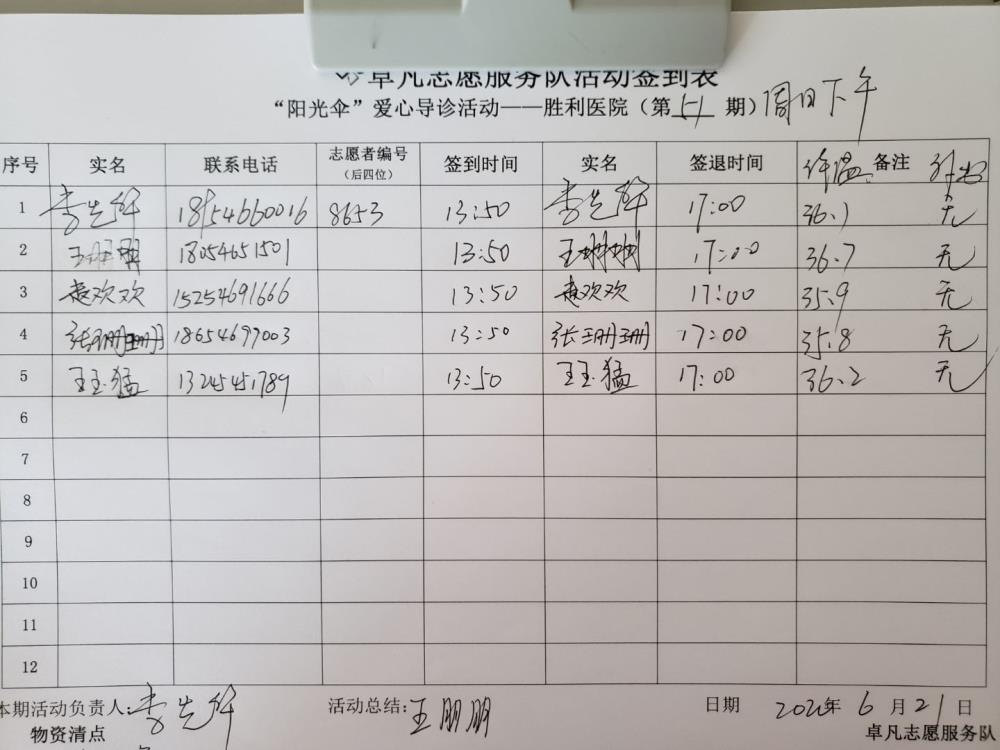 卓凡志愿服务队活动签到表
“阳光伞”爱心导诊活动——胜利医院（第 51 期）周日下午
序号 实名 联系电话 志愿者编号（后四位） 签到时间 实名 签退时间 体温 备注
1 李先 18154660016 8653 13:50 李先 17:00 36.1 无
2 王 18054651501 13:50 王 17:00 36.7 无
3 赵欢欢 15254691666 13:50 赵欢欢 17:00 35.9 无
4 张珊珊 18654697003 13:50 张珊珊 17:00 35.8 无
5 王玉猛 13245451789 13:50 王玉猛 17:00 36.2 无
6
7
8
9
10
11
12
本期活动负责人：李先 活动总结：王朋朋 日期 2020年 6 月 21 日
物资清点 卓凡志愿服务队